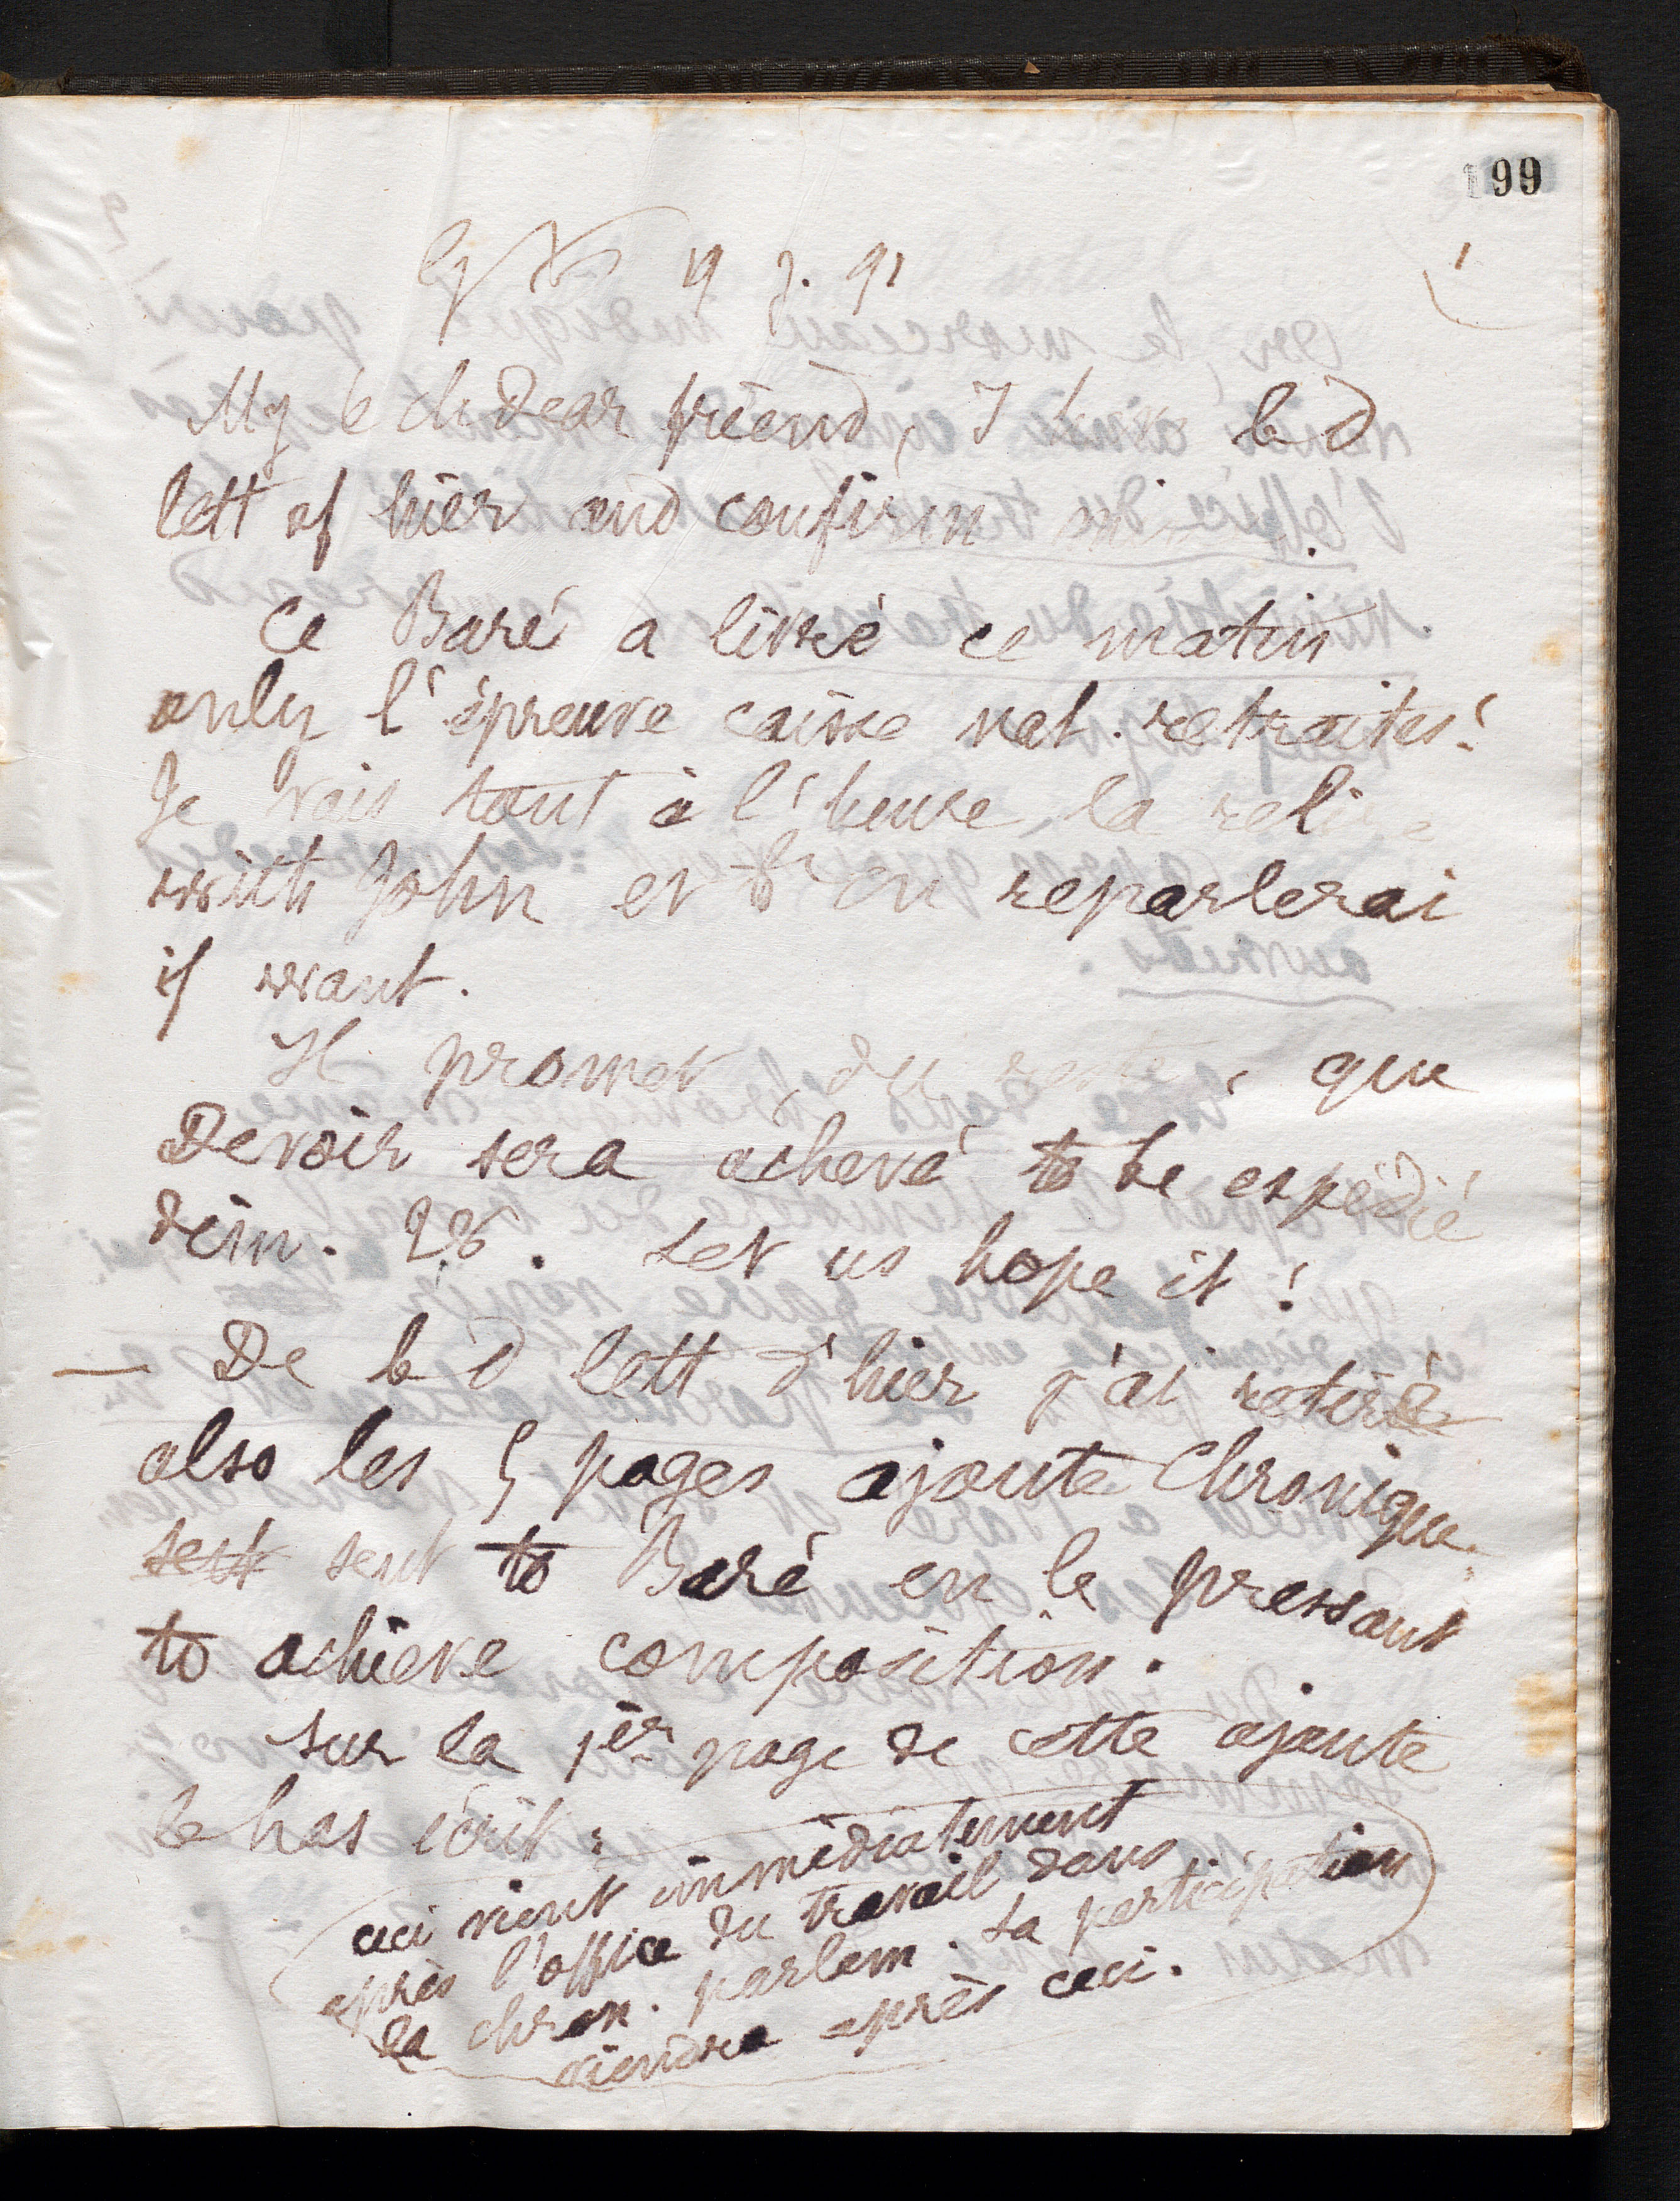 99
1
19 J. 91
My b ch dear friend, I have b d
lett of hier and confirm mine.
Ce Baré a livré ce matin
only l'épreuve caisse nat. retraites!
Je vais tout à l'heure la relire
with John et t'en reparlerai
if want.
Il promet, du reste, que
Devoir sera achevé to be expédié
dim. 28. Let us hope it!
— De b d lett d'hier j'ai retiré
also les 5 pages ajoute Chronique
sent sent to Baré en le pressant
to achieve composition.
Sur la 1èr page de cette ajoute
b has écrit:
ceci vient immédiatement
après l'office du travail dans
la chron. parlem. La participation
viendra après ceci.